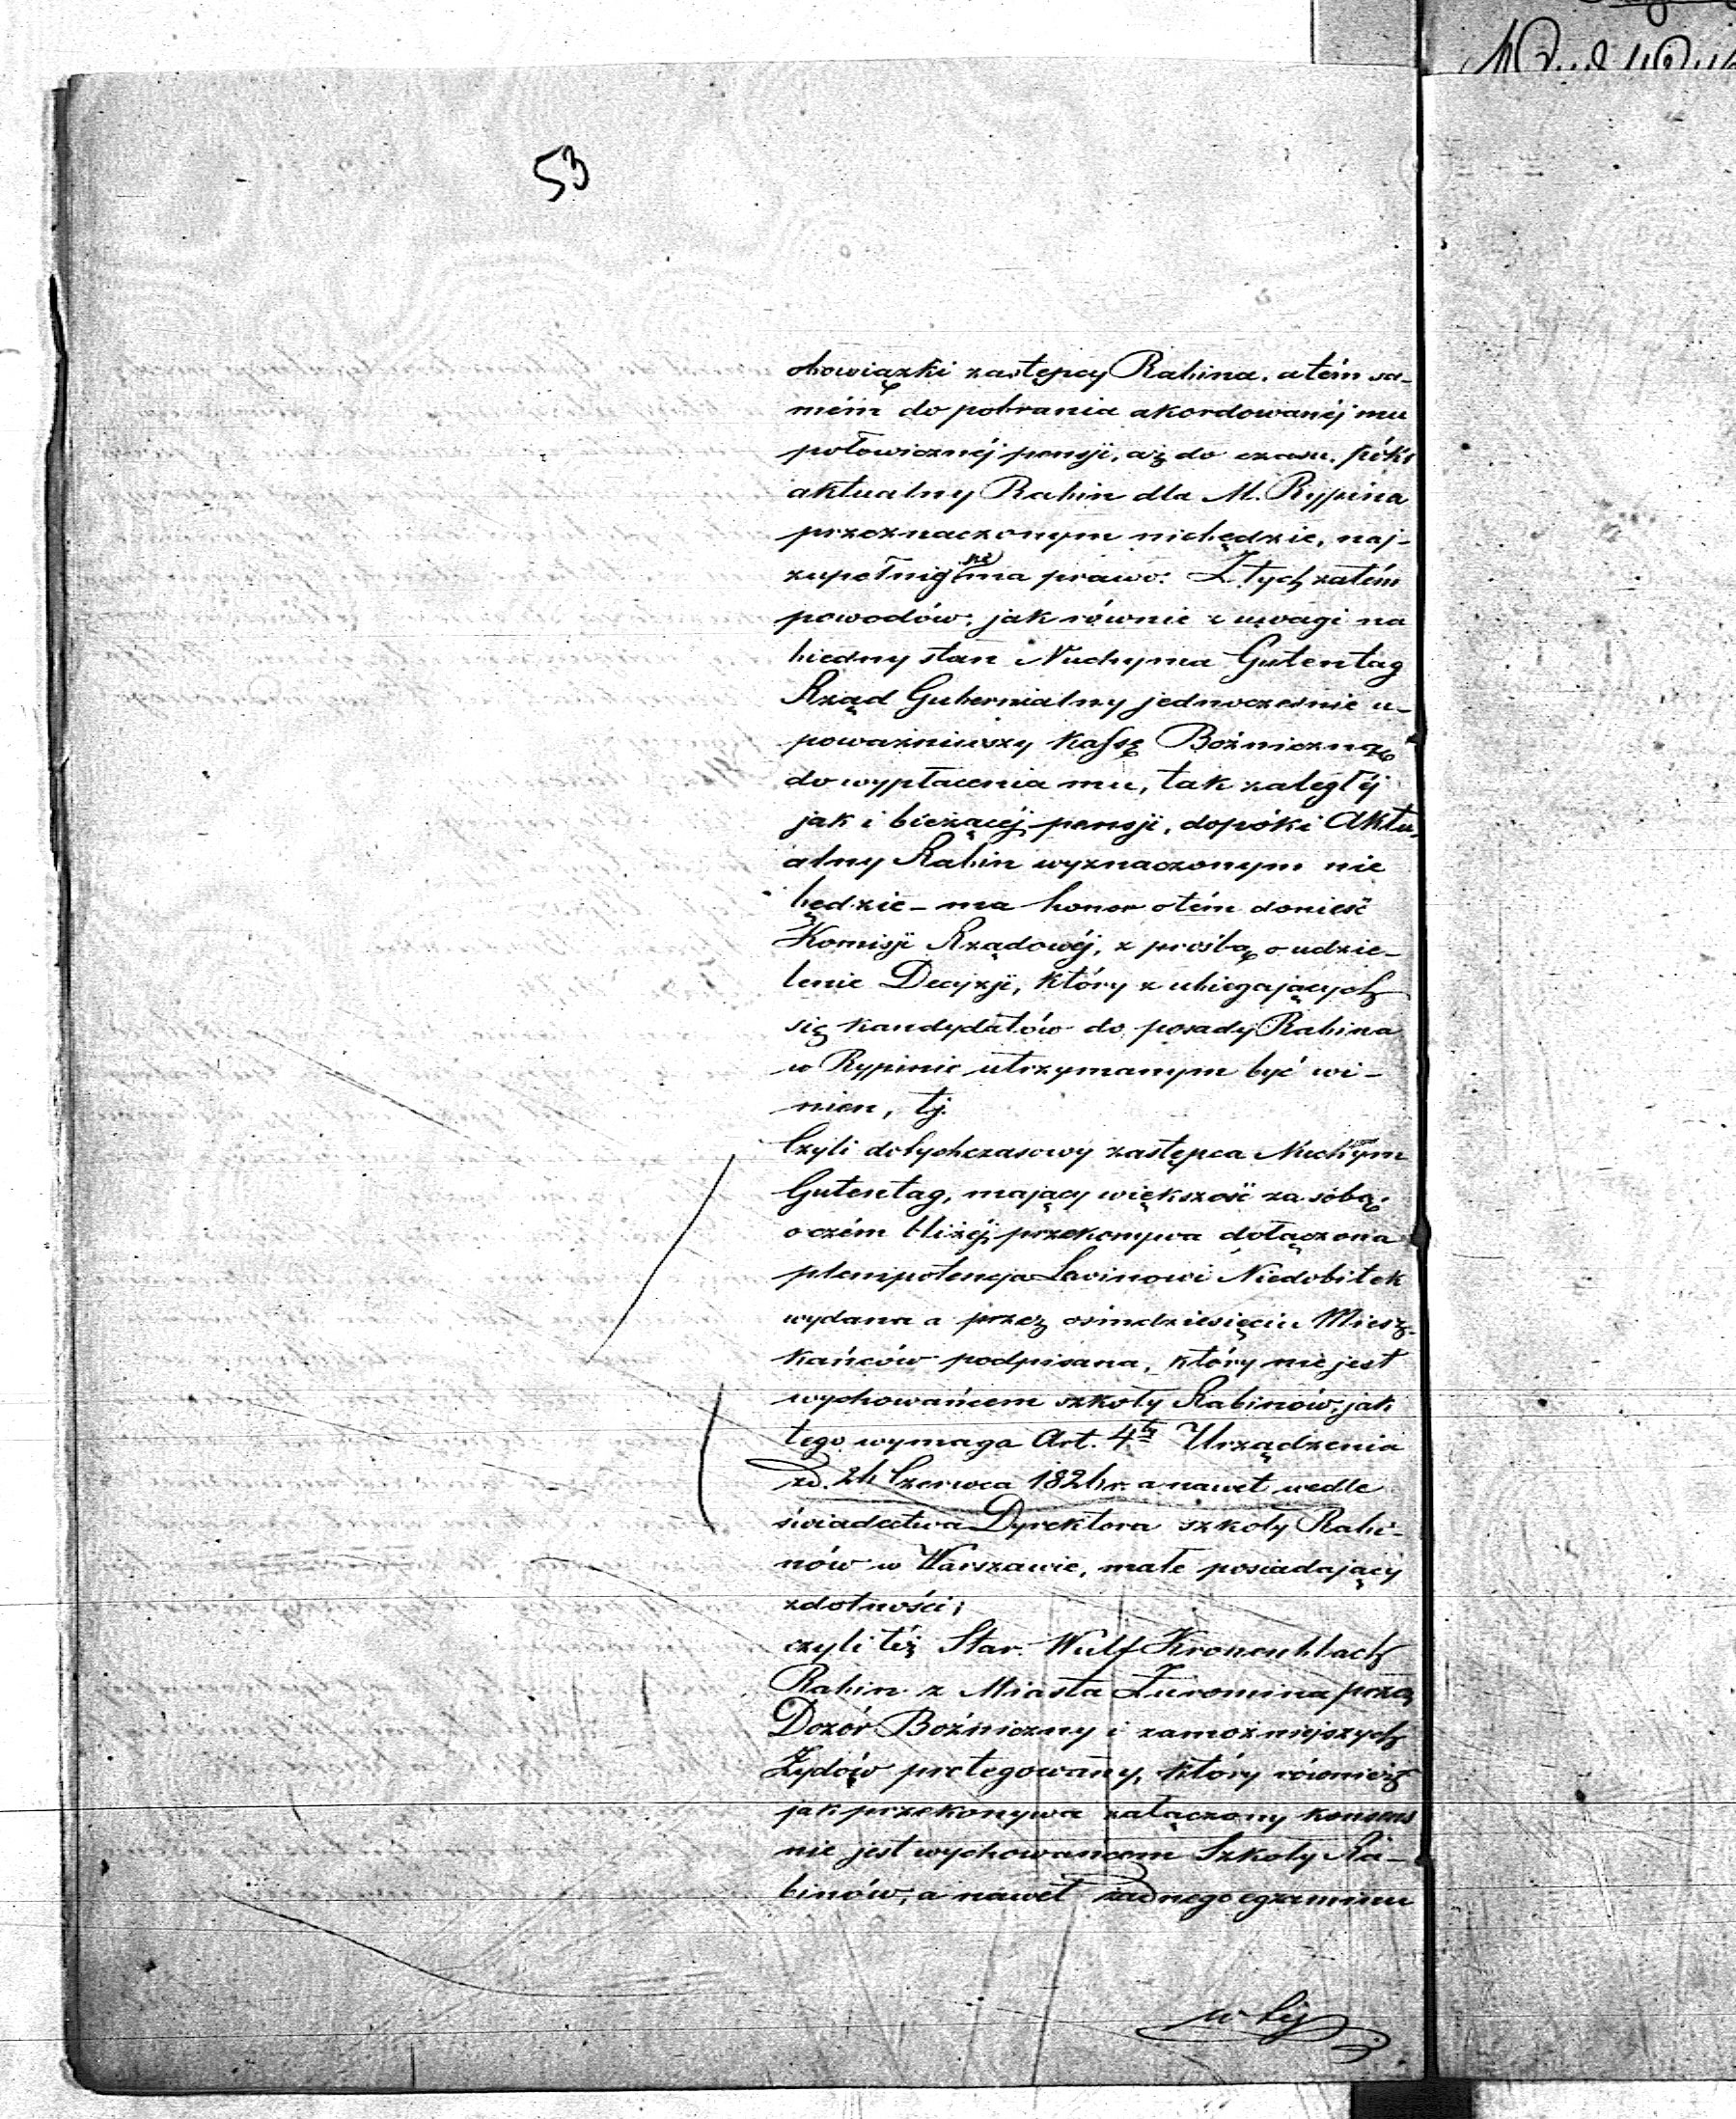 53
obowiązki zastępcy Rabina, a tém sa-
mém do pobrania akordowanéj mu
połowicznéj pensji, aż do czasu, póki
aktualny Rabin dla M. Rypina
przeznaczonym niebędzie, naj-
zupełniéj ma prawo. Z tych zatém
powodów, jak równie z uwagi na
biedny stan Nuchyma Gutentag
Rząd Gubernialny jednocześnie u-
poważniwszy kassę Bożniczną
do wypłacenia mu, tak zaległéj
jak i bieżącéj pensji, dopóki Aktu-
alny Rabin wyznaczonym nie
będzie – ma honor o tém donieść
Komisji Rządowéj, z prośbą o udzie-
lenie Decyzji, który z ubiegających
się kandydatów do posady Rabina
w Rypinie utrzymanym być wi-
nien, tj.
Czyli dotychczasowy zastępca Nuchym
Gutentag, mający większość za sobą,
o czém bliżéj przekonywa dołączona
plenipotencja Lewinowi Niedobitek
wydana a przez ośmdziesięciu Miesz-
kańców podpisana, który nie jest
wychowańcem szkoły Rabinów, jak
tego wymaga Art. 4ty Urządzenia
zd. 24 Czerwca 1824 r. a nawet wedle
świadectwa Dyrektora szkoły Rabi-
nów w Warszawie, małe posiadający
zdolności;
czyli téż Star. Wulf Kronenblach
Rabin z Miasta Żuromina przez
Dozór Bożniczny i zamożniejszych
Żydów protegowany, który również
jak przekonywa załączony konsens
nie jest wychowańcem Szkoły Ra-
binów, a nawet żadnego egzaminu
w téj